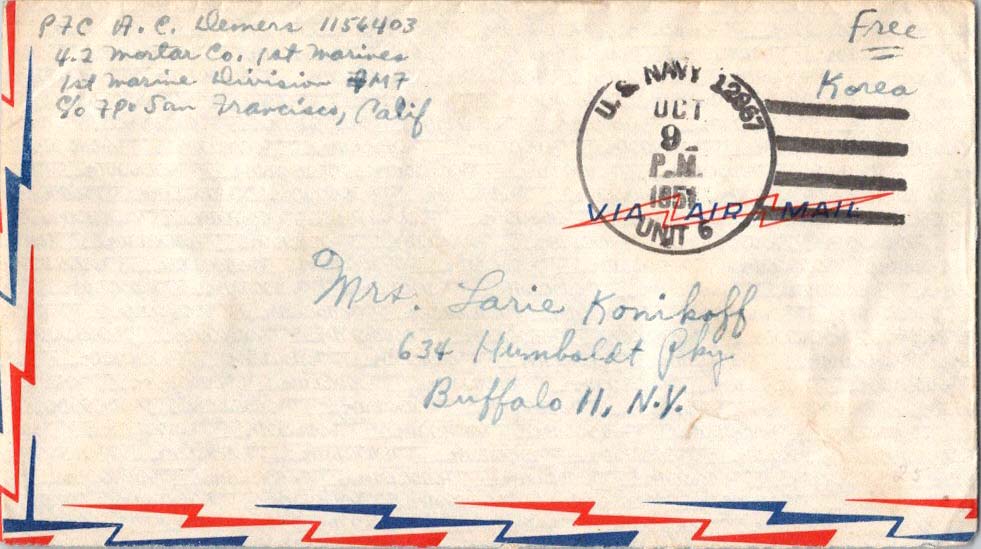 PFC A. C. Demers 1156403
4.2 Mortar Co. 1st Marines
1st Marine Division FMF
c/o FPO San Francisco, Calif
Free
Korea
U.S. NAVY 12867
OCT
9
P.M.
1951
UNIT 6
VIA AIR MAIL
Mrs. Larie Konikoff
634 Humboldt Pky
Buffalo 11, N.Y.
25